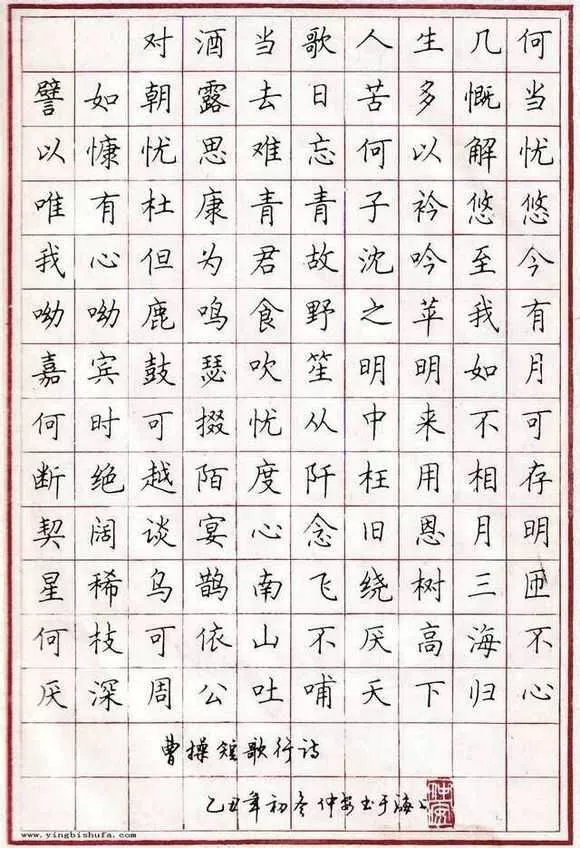 对酒当歌人生几何
譬如朝露去日苦多慨当
以慷忧思难忘何以解忧
唯有杜康青青子衿悠悠
我心但为君故沈吟至今
呦呦鹿鸣食野之苹我有
嘉宾鼓瑟吹笙明明如月
何时可掇忧从中来不可
断绝越陌度阡枉用相存
契阔谈宴心念旧恩月明
星稀鸟鹊南飞绕树三匝
何枝可依山不厌高海不
厌深周公吐哺天下归心
曹操短歌行诗
乙丑年初冬仲安书于海上
www.yingbishufa.com